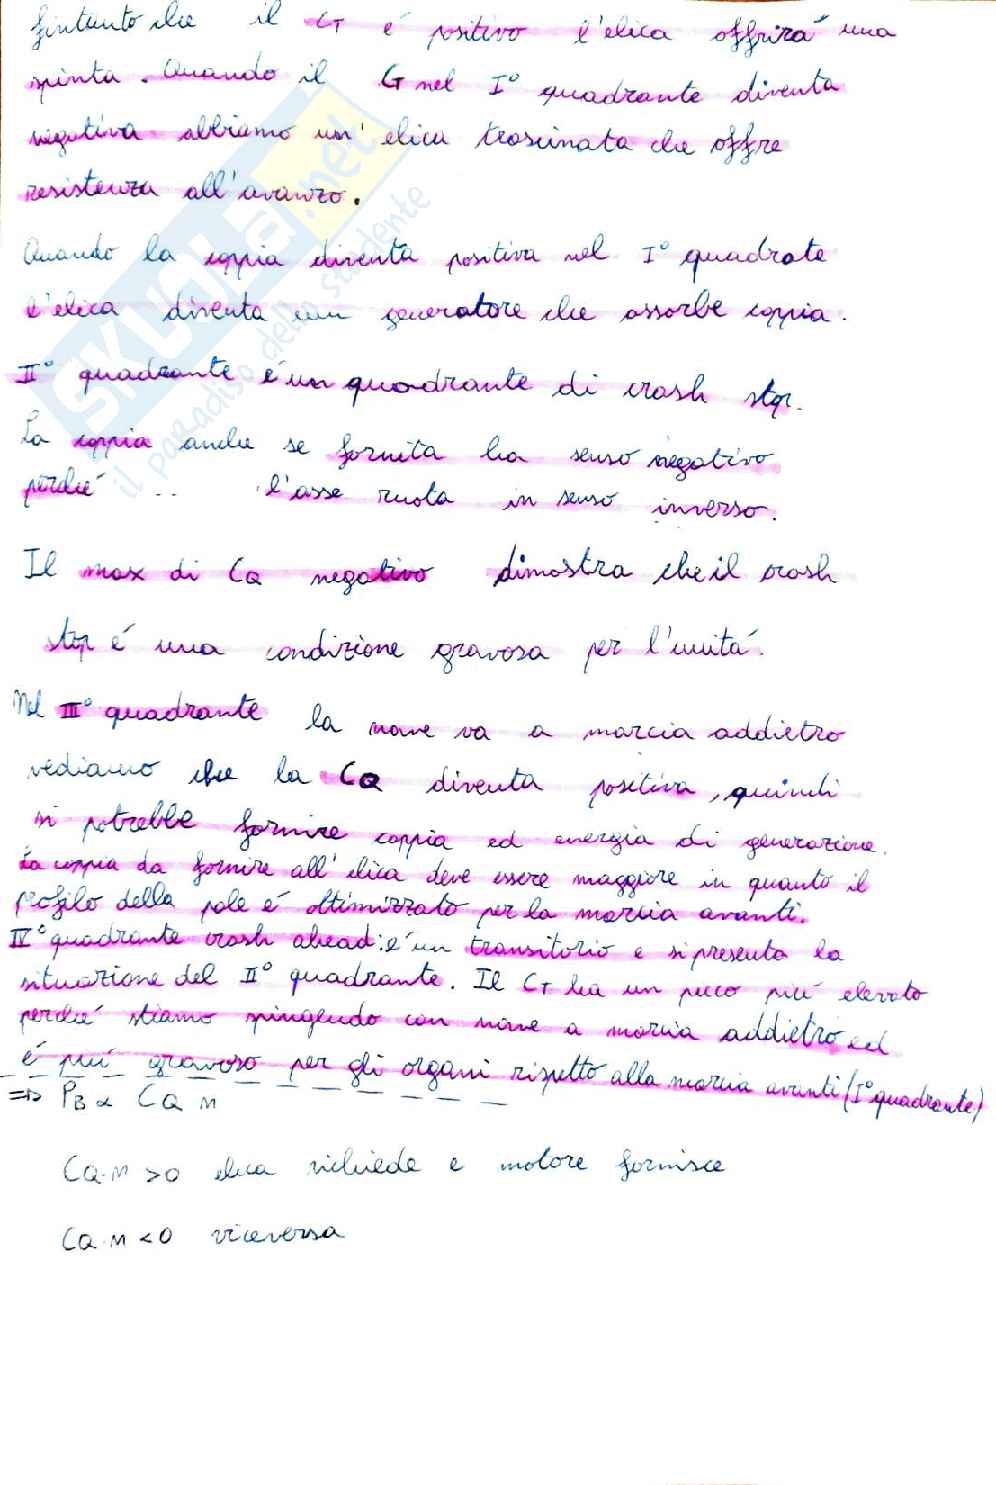 fintanto che il CT é positivo l'elica offrirá una
spinta. Quando il CT nel I° quadrante diventa
negativa abbiamo un'elica trascinata che offre
resistenza all'avanzo.
Quando la coppia diventa positiva nel I° quadrate
l'elica diventa un generatore che assorbe coppia.
II° quadrante é un quadrante di crash stop.
La coppia anche se fornita ha senso negativo
perché .. l'asse ruota in senso inverso.
Il max di CQ negativo dimostra che il crash
stop é una condizione gravosa per l'unitá.
Nel III° quadrante la nave va a marcia addietro
vediamo che la CQ diventa positiva, quindi
si potrebbe fornire coppia ed energia di generazione.
La coppia da fornire all'elica deve essere maggiore in quanto il
profilo della pale é ottimizzato per la marcia avanti.
IV° quadrante crash ahead: é un transitorio e si presenta la
situazione del II° quadrante. Il CT ha un poco piú elevato
perché stiamo spingendo con nave a marcia addietro ed
é piú gravoso per gli organi rispetto alla marcia avanti (I° quadrante)
=> PB ∝ CQ n
CQ·n >0 elica richiede e motore fornisce
CQ·n <0 viceversa
SKUOLA.net
il paradiso dello studente